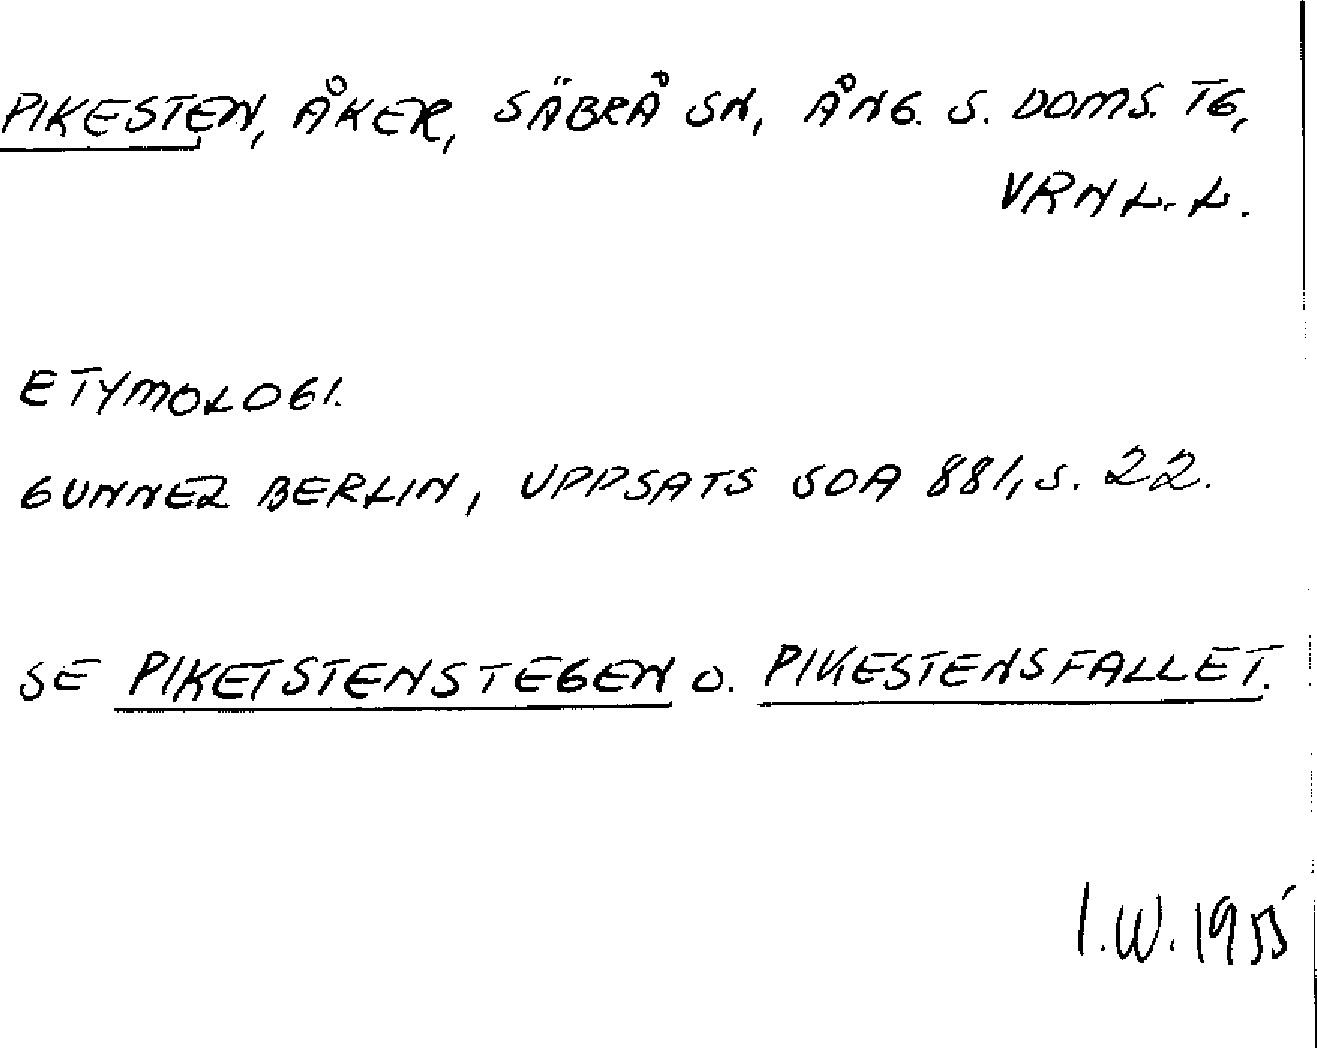 PIKESTEN, ÅKER, SÄBRÅ SN, ÅNG. S. DOMS. TG,
VRNL. L.
ETYMOLOGI.
GUNNEL BERLIN, UPPSATS SOA 881, S. 22.
SE PIKETSTENSTEGEN O. PIKESTENSFALLET.
I.W. 1955